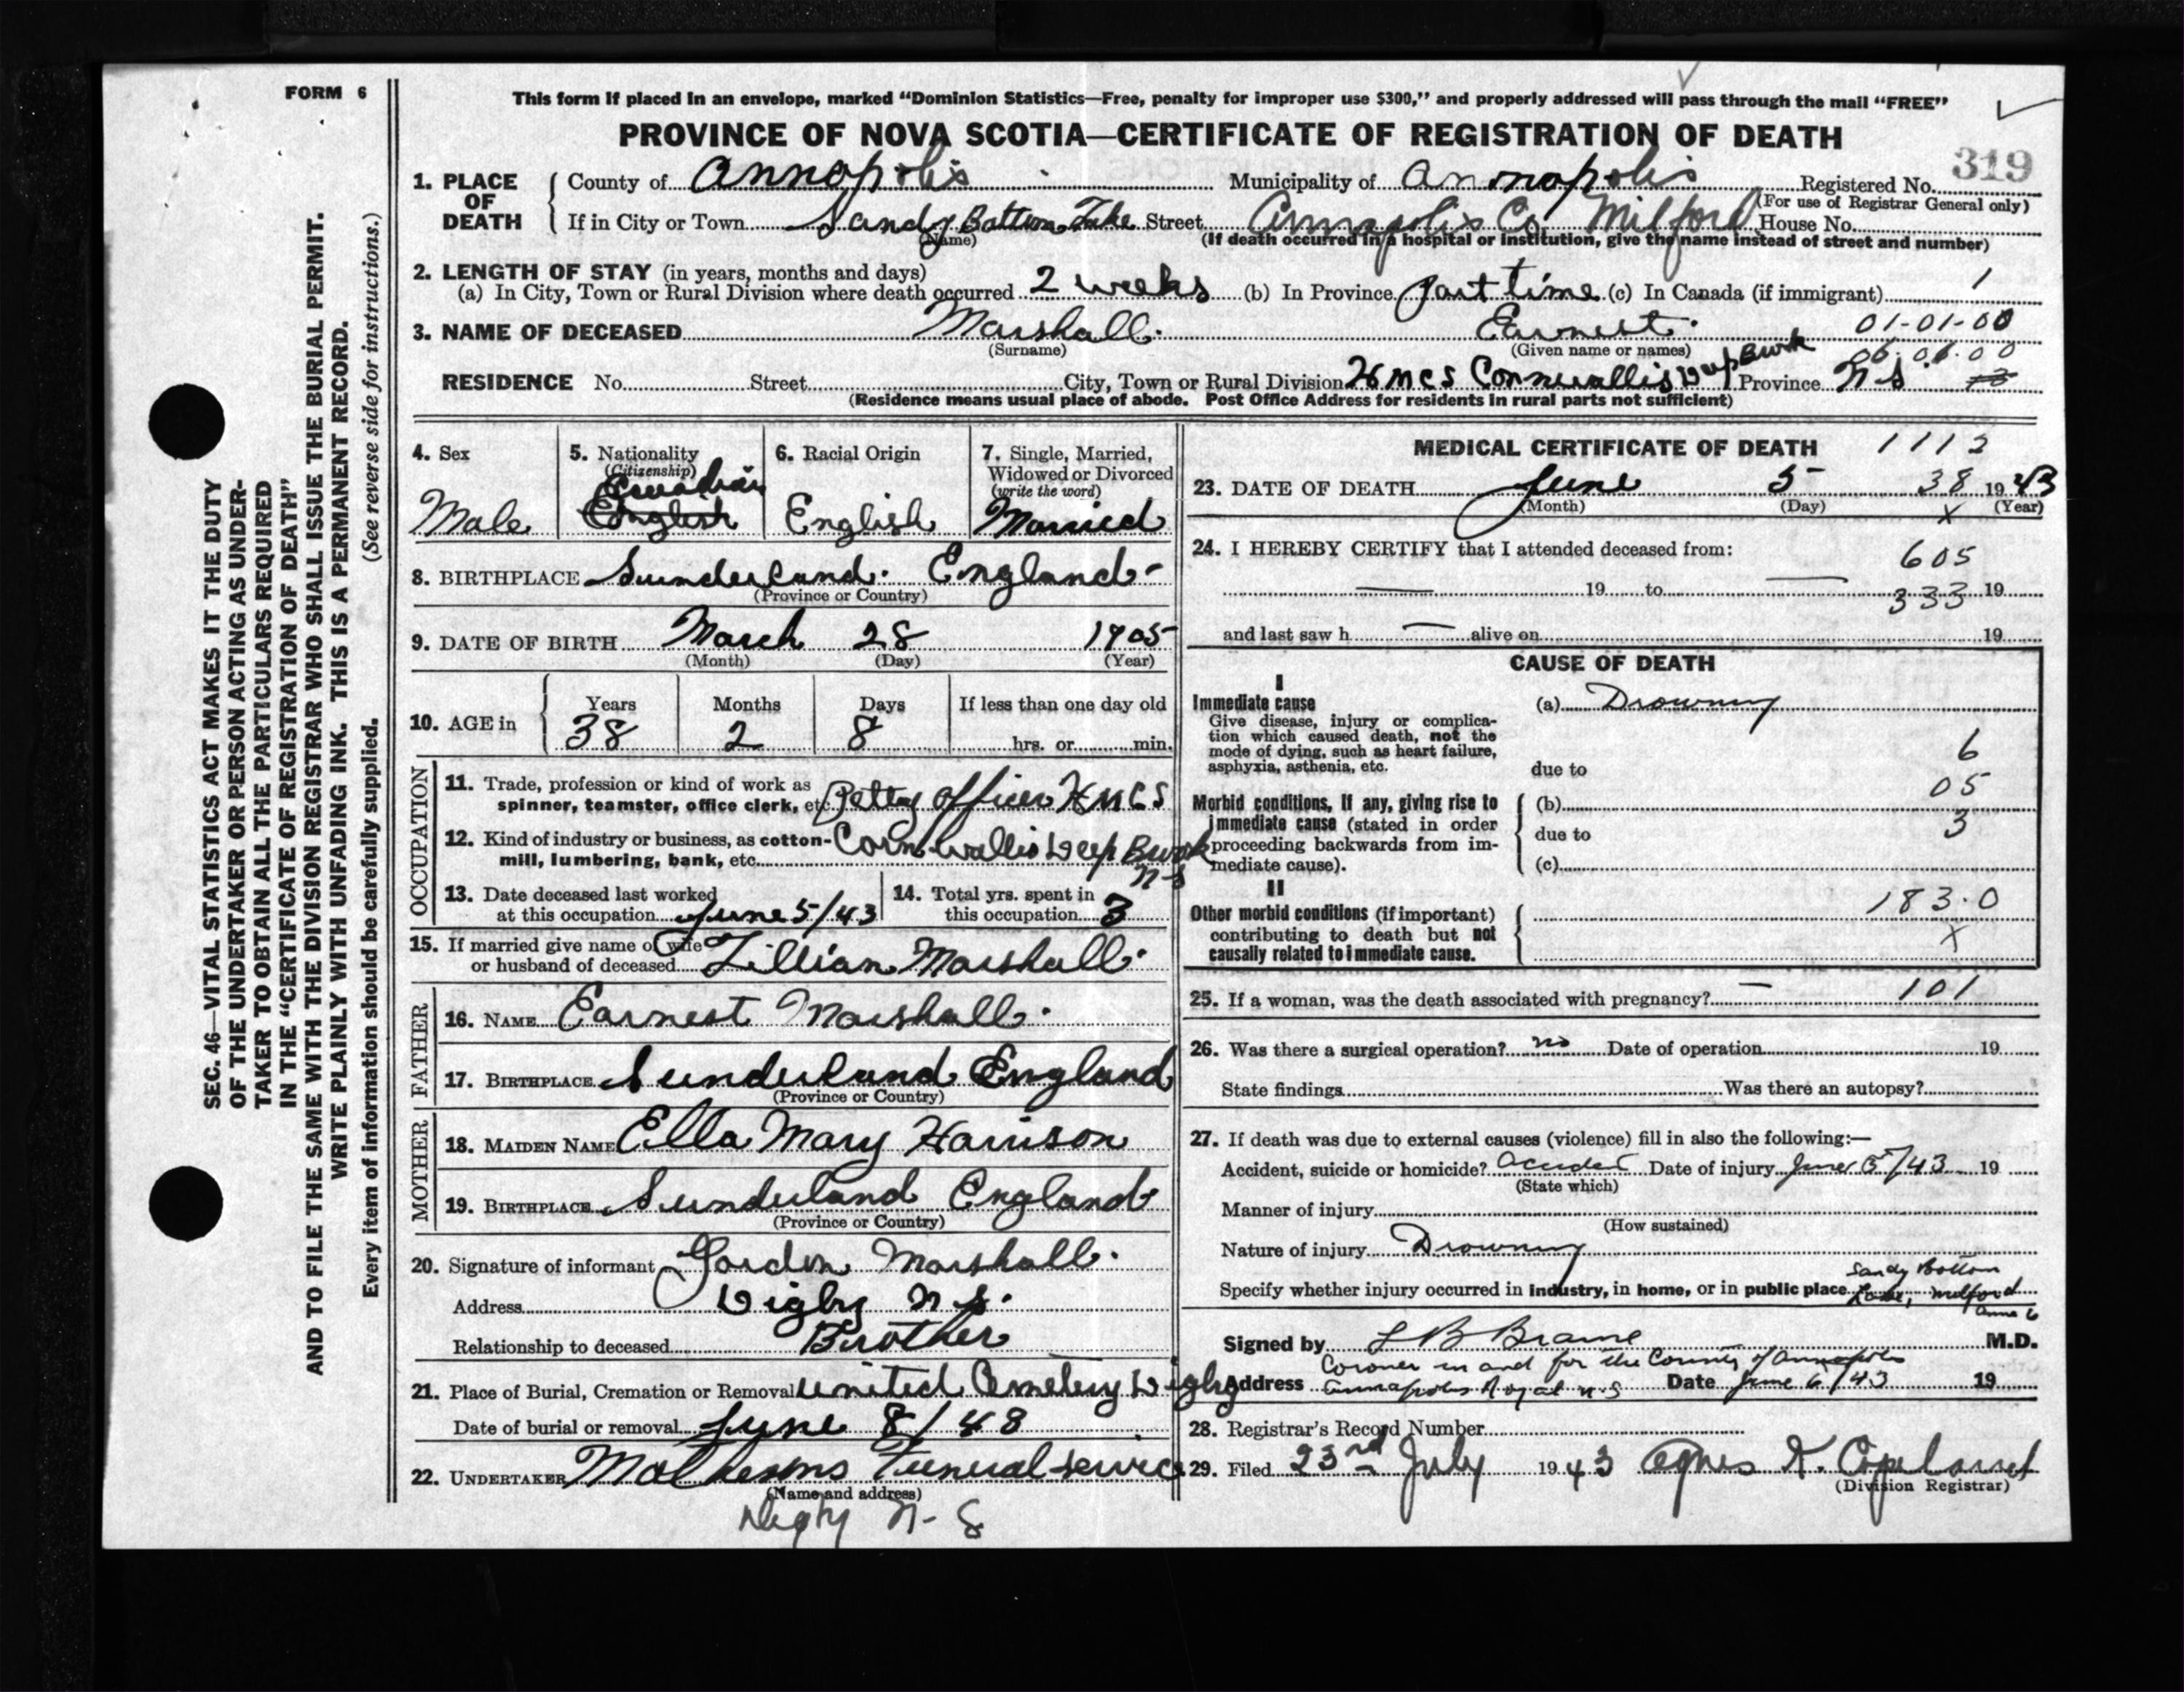 FORM 6
This form if placed in an envelope, marked "Dominion Statistics—Free, penalty for improper use $300," and properly addressed will pass through the mail "FREE"
PROVINCE OF NOVA SCOTIA—CERTIFICATE OF REGISTRATION OF DEATH
319
1. PLACE OF DEATH
County of Annapolis Municipality of Annapolis Registered No.
(For use of Registrar General only)
If in City or Town Sandy Bottom Lake Street Annapolis Co Milford House No.
(Name) (If death occurred in a hospital or institution, give the name instead of street and number)
2. LENGTH OF STAY (in years, months and days)
(a) In City, Town or Rural Division where death occurred 2 weeks (b) In Province part time (c) In Canada (if immigrant) 1
3. NAME OF DECEASED Marshall. Earnest. 01-01-00
(Surname) (Given name or names) 06.01.00
RESIDENCE No. Street City, Town or Rural Division HMCS Cornwallis Deep Brook Province N.S.
(Residence means usual place of abode. Post Office Address for residents in rural parts not sufficient)
4. Sex
Male
5. Nationality
(Citizenship)
Canadian
English
6. Racial Origin
English
7. Single, Married, Widowed or Divorced
(write the word)
Married
8. BIRTHPLACE Sunderland. England
(Province or Country)
9. DATE OF BIRTH March 28 1905
(Month) (Day) (Year)
10. AGE in Years Months Days If less than one day old
38 2 8 hrs. or min.
OCCUPATION
11. Trade, profession or kind of work as
spinner, teamster, office clerk, etc. Petty Officer HMCS
12. Kind of industry or business, as cotton-
mill, lumbering, bank, etc. Cornwallis Deep Brook
N-S
13. Date deceased last worked
at this occupation June 5/43
14. Total yrs. spent in
this occupation 3
15. If married give name of wife
or husband of deceased Lillian Marshall.
FATHER
16. NAME Earnest Marshall.
17. BIRTHPLACE Sunderland England
(Province or Country)
MOTHER
18. MAIDEN NAME Ella Mary Harrison
19. BIRTHPLACE Sunderland England
(Province or Country)
20. Signature of informant Gordon Marshall.
Address Digby N.S.
Relationship to deceased Brother
21. Place of Burial, Cremation or Removal United Cemetery Digby
Date of burial or removal June 8/43
22. UNDERTAKER Mathesons Funeral Service
(Name and address)
Digby N-S
MEDICAL CERTIFICATE OF DEATH 1112
23. DATE OF DEATH June 5 38 1943
(Month) (Day) X (Year)
24. I HEREBY CERTIFY that I attended deceased from: 605
— 19 to — 333 19
and last saw h — alive on 19
CAUSE OF DEATH
I
Immediate cause
Give disease, injury or complication which caused death, not the mode of dying, such as heart failure, asphyxia, asthenia, etc.
(a) Drowning
6
due to
05
Morbid conditions, if any, giving rise to immediate cause (stated in order proceeding backwards from immediate cause).
(b)
3
due to
(c)
II
Other morbid conditions (if important) contributing to death but not causally related to immediate cause.
183.0
X
25. If a woman, was the death associated with pregnancy? — 101
26. Was there a surgical operation? no Date of operation 19
State findings Was there an autopsy?
27. If death was due to external causes (violence) fill in also the following:—
Accident, suicide or homicide? Accident Date of injury June 5/43 19
(State which)
Manner of injury
(How sustained)
Nature of injury Drowning
Specify whether injury occurred in industry, in home, or in public place Sandy Bottom
Lake, Milford
Anna Co
Signed by L B Braine M.D.
Coroner in and for the County of Annapolis
Address Annapolis Royal N-S Date June 6/43 19
28. Registrar's Record Number
29. Filed 23rd July 1943 Agnes K. Copeland
(Division Registrar)
SEC. 46—VITAL STATISTICS ACT MAKES IT THE DUTY
OF THE UNDERTAKER OR PERSON ACTING AS UNDER-
TAKER TO OBTAIN ALL THE PARTICULARS REQUIRED
IN THE "CERTIFICATE OF REGISTRATION OF DEATH"
AND TO FILE THE SAME WITH THE DIVISION REGISTRAR WHO SHALL ISSUE THE BURIAL PERMIT.
WRITE PLAINLY WITH UNFADING INK. THIS IS A PERMANENT RECORD.
Every item of information should be carefully supplied. (See reverse side for instructions.)